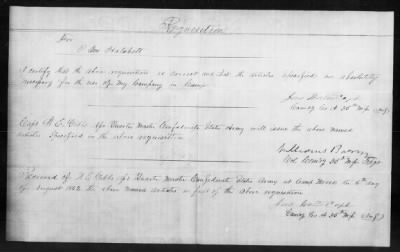 Requisition
For
One Hatchett
I certify that the above requisition is correct and that the articles specified are absolutely
necessary for the use of my Company in Camp
Comdg Co A 35th Miss Regt
Capt. W. E. Gibbs Quarter Master Confederate States Army will issue the above named
articles specified in the above requisition
William S Barry
Col Comdg 35th Miss Regt
Received of W E Gibbs Quarter Master Confederate States Army at Camp the 6th day
of August 1862 the above named articles in full of the above requisition
Comdg Co A 35th Miss Regt